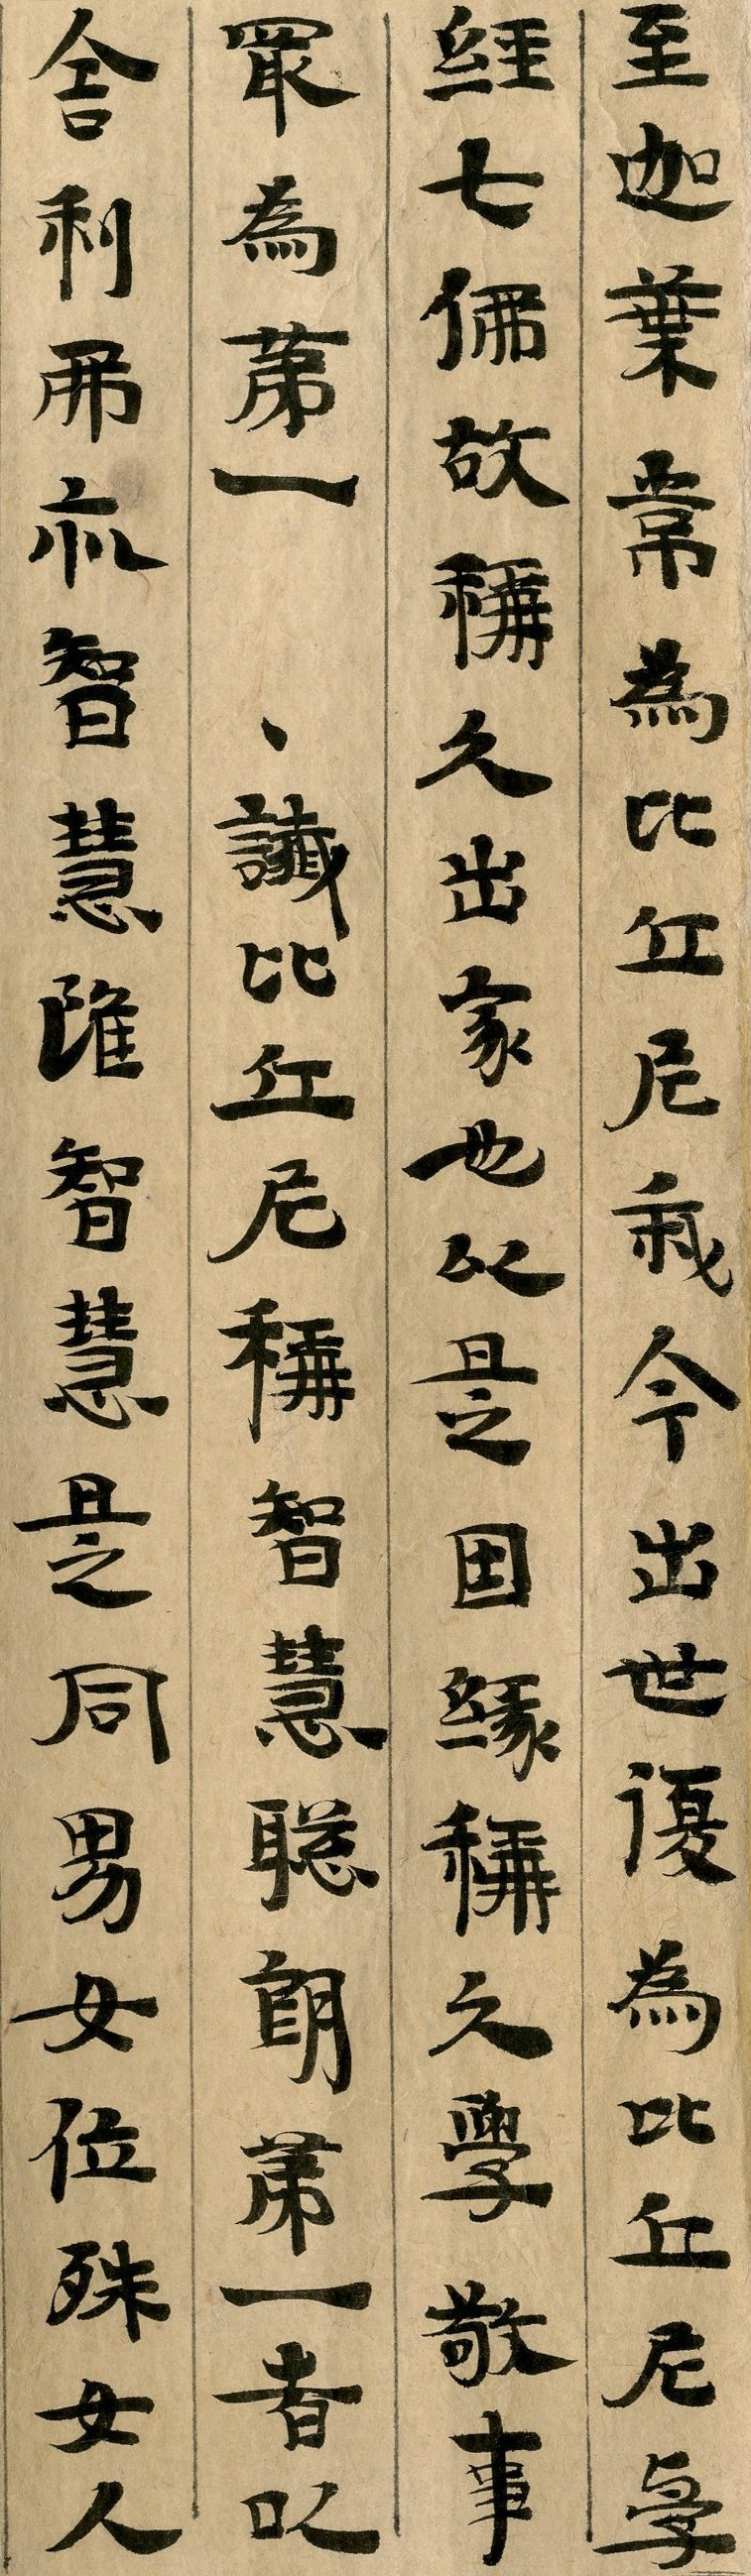 至迦葉常為比丘尼我今出世復為比丘尼學
經七佛故稱久出家也以是因緣稱之學敬事
眾為第一 、讖比丘尼稱智慧聰朗第一者以
舍利弗亦智慧唯智慧是同男女位殊女人